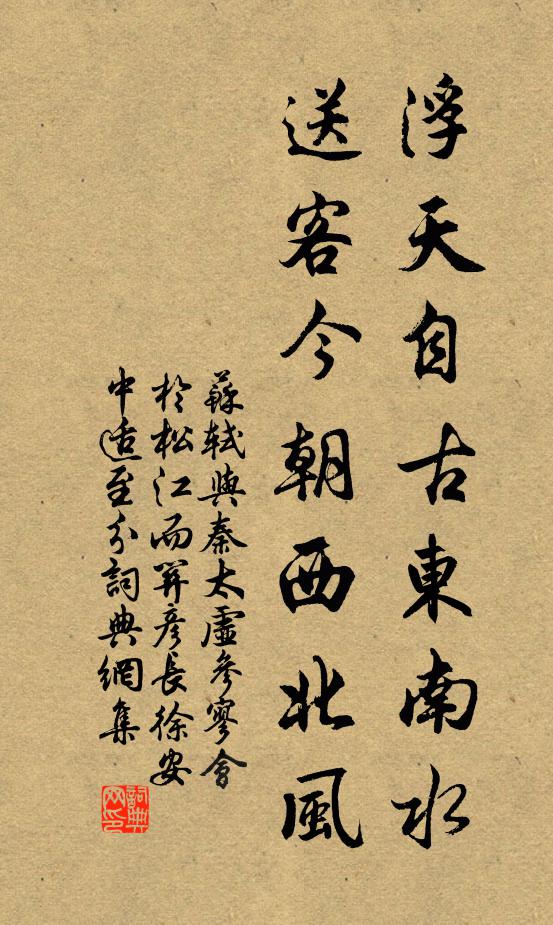 浮天自古東南水
送客今朝西北風
蘇軾與秦太虛參寥會
於松江而關彥長徐安
中適至分詞典網集
詞典
网印